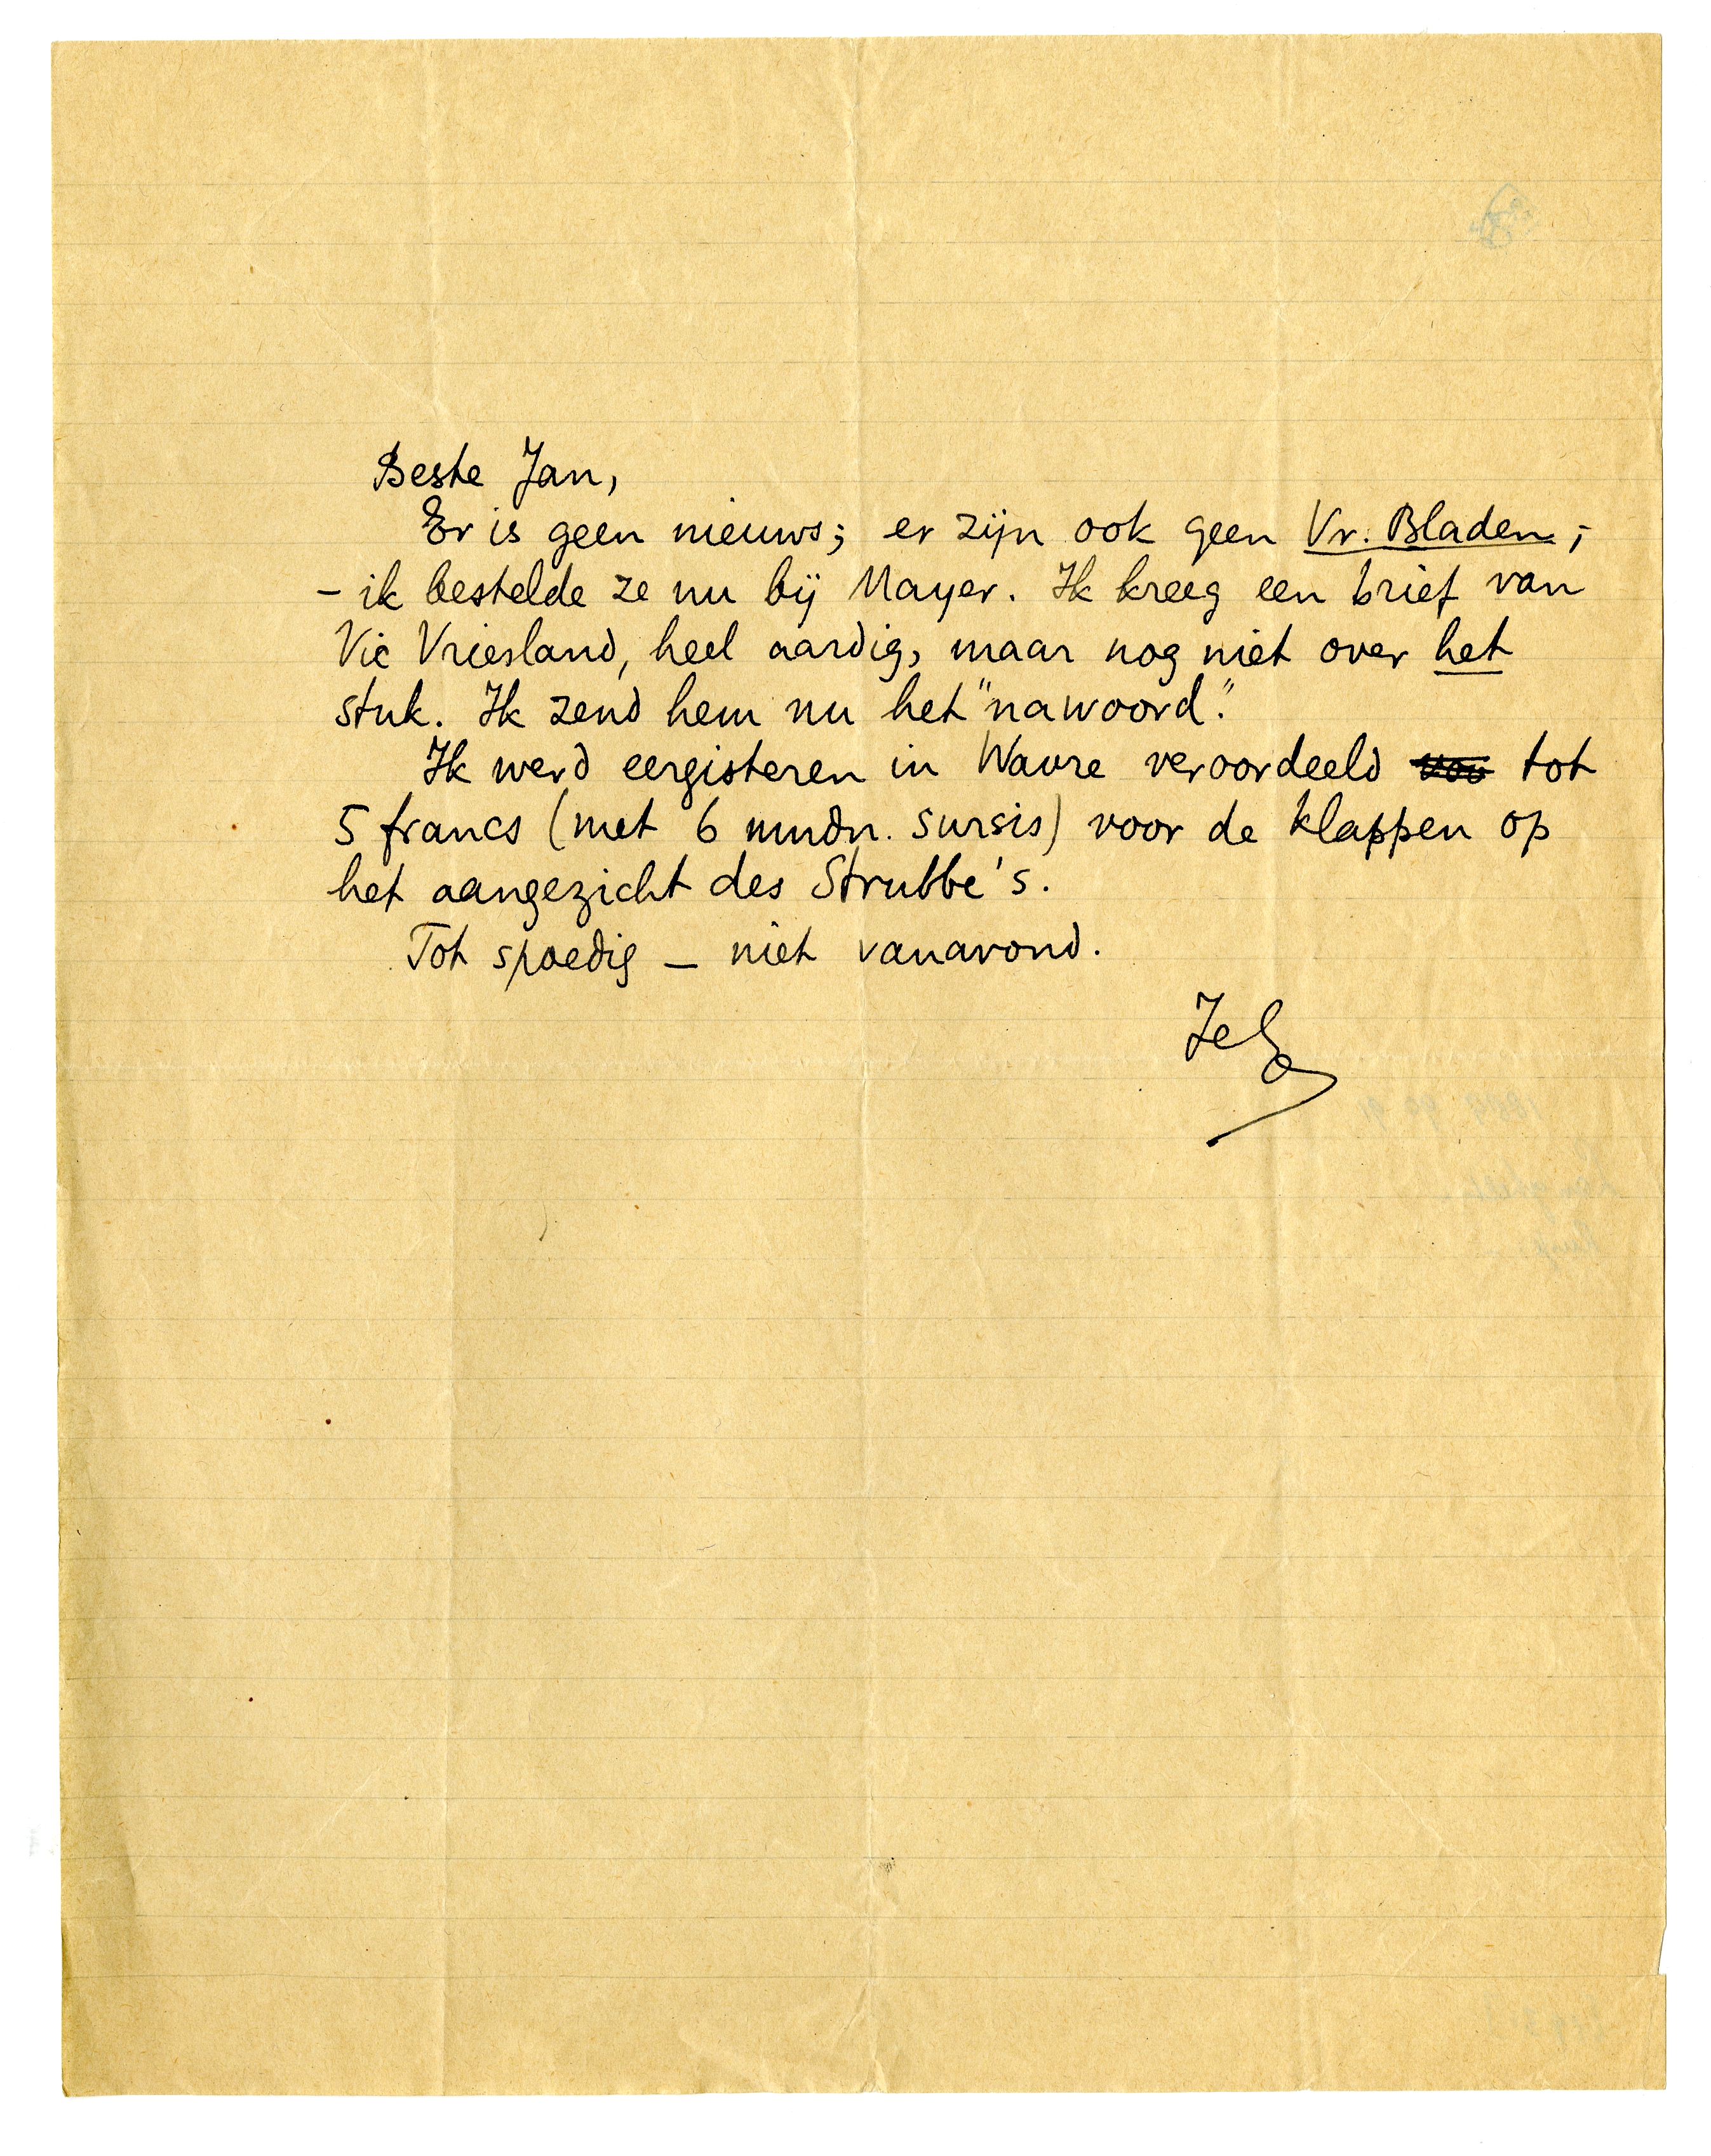 Beste Jan,
Er is geen nieuws; er zijn ook geen Vr. Bladen;
- ik bestelde ze nu bij Mayer. Ik kreeg een brief van
Vic Vriesland, heel aardig, maar nog niet over het
stuk. Ik zend hem nu het "nawoord".
Ik werd eergisteren in Wavre veroordeeld tot
5 francs (met 6 mndn. sursis) voor de klappen op
het aangezicht des Strubbe's.
Tot spoedig – niet vanavond.